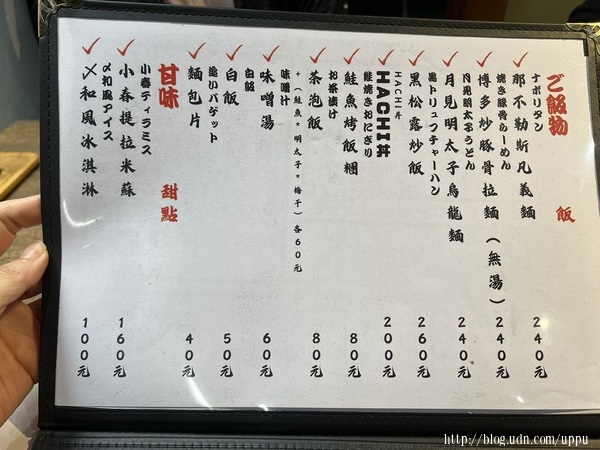 ご飯物 飯
ナポリタン
那不勒斯凡義麵 240元
焼き豚骨らーめん
博多炒豚骨拉麵(無湯) 240元
月見明太子うどん
月見明太子烏龍麵 240元
黒トリュフチャーハン
黑松露炒飯 260元
HACHI丼
HACHI丼 200元
鮭焼きおにぎり
鮭魚烤飯糰 80元
お茶漬け
茶泡飯 80元
+(鮭魚*明太子*梅干)各60元
味噌汁
味噌湯 60元
白飯
白飯 50元
温いバゲット
麵包片 40元
甘味 甜點
小春ティラミス
小春提拉米蘇 160元
〆和風アイス
〆和風冰淇淋 100元
http://blog.udn.com/uppu